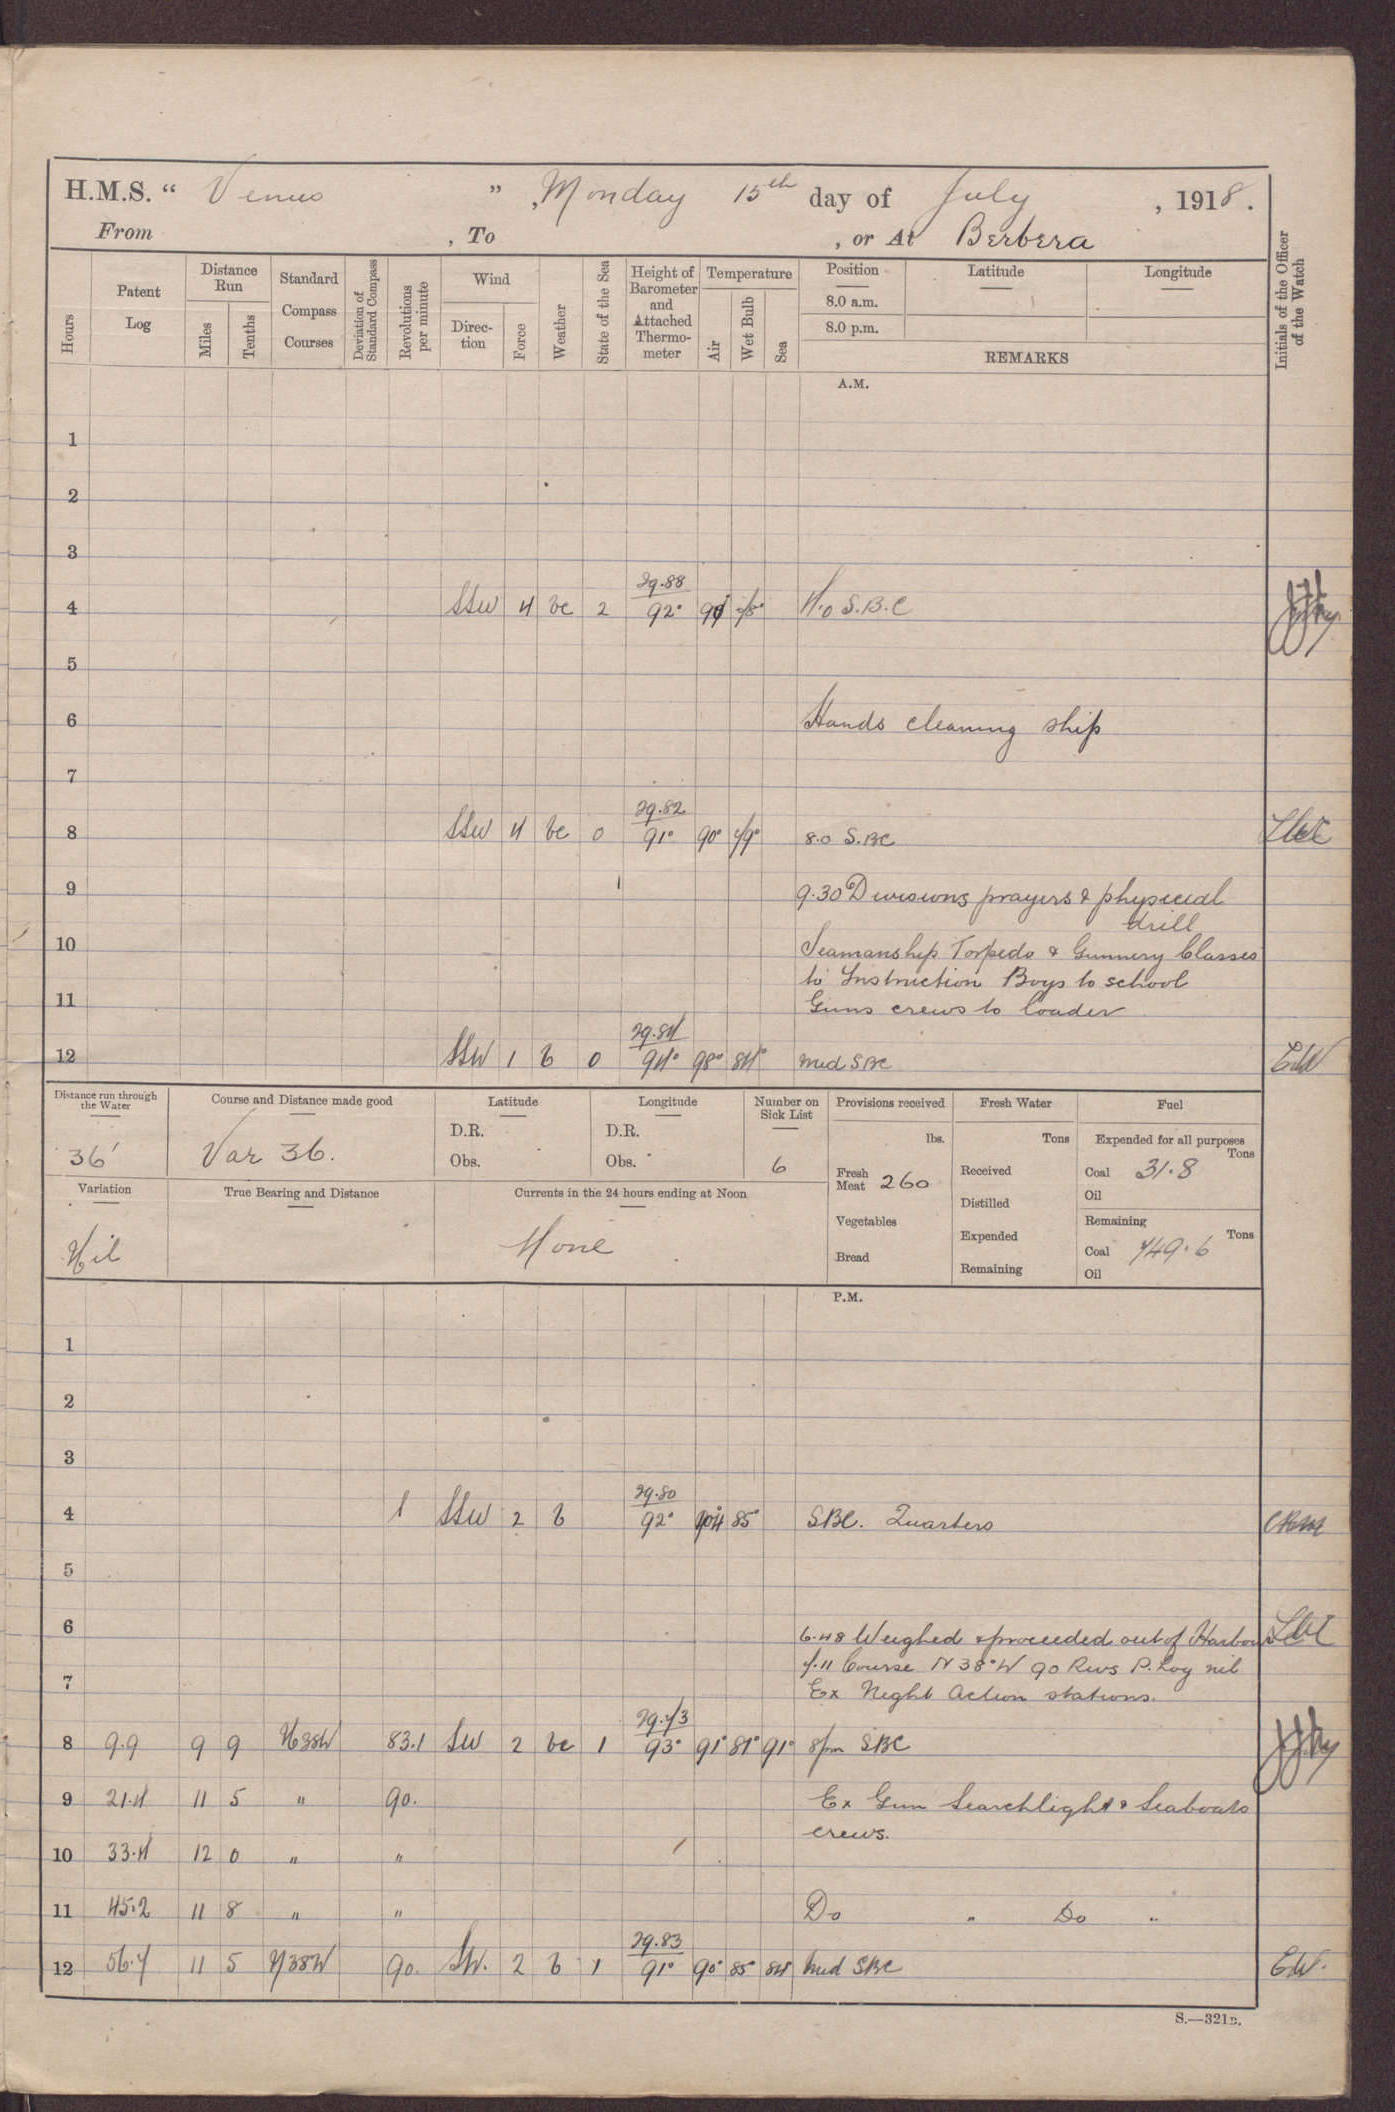 H.M.S. “ Venus ” , Monday 15th day of July , 1918.
From , To , or At Berbera
Hours
Patent
Log
Distance
Run
Miles
Tenths
Standard
Compass
Courses
Deviation of
Standard Compass
Revolutions
per minute
Wind
Direc-
tion
Force
Weather
State of the Sea
Height of
Barometer
and
Attached
Thermo-
meter
Temperature
Air
Wet Bulb
Sea
Position
8.0 a.m.
8.0 p.m.
Latitude
Longitude
REMARKS
Initials of the Officer
of the Watch
A.M.
1
2
3
29.88
4 SSW 4 bc 2 92° 4.0 S.B.C
5
6 Hands cleaning ship
7
29.82
8 SSW 4 bc 0 91° 90° 79° 8.0 S.BC
9 9.30 Divisions prayers & physical
drill
10 Seamanship Torpedo & Gunnery Classes
to Instruction Boys to school
11 Guns crews to loader
29.84
12 SSW 1 b 0 94° 98° 84° Mid SBC EW
Distance run through
the Water
36'
Course and Distance made good
Var 36.
Latitude
D.R.
Obs.
Longitude
D.R.
Obs.
Number on
Sick List
6
Provisions received
lbs.
Fresh
Meat 260
Vegetables
Bread
Fresh Water
Tons
Received
Distilled
Expended
Remaining
Fuel
Expended for all purposes
Tons
Coal 31.8
Oil
Remaining
Tons
Coal 749.6
Oil
Variation
Nil
True Bearing and Distance
Currents in the 24 hours ending at Noon
None
P.M.
1
2
3
29.80
4 1 SSW 2 b 92° 104° 85° SBC. Quarters
5
6 6.48 Weighed & proceeded out of Harbour
7.11 Course N 38°W 90 Revs P. Log nil
7 Ex Night Action stations.
29.73
8 9.9 9 9 N38W 83.1 SW 2 bc 1 93° 91° 81° 91° 8pm SBC
9 21.4 11 5 " 90. Ex Gun Searchlight & Seaboats
crews.
10 33.4 12 0 " "
11 45.2 11 8 " " Do " Do "
29.83
12 56.7 11 5 N38W 90. SW. 2 b 1 91° 90° 85° 84 Mid SBC EW.
S.—321B.